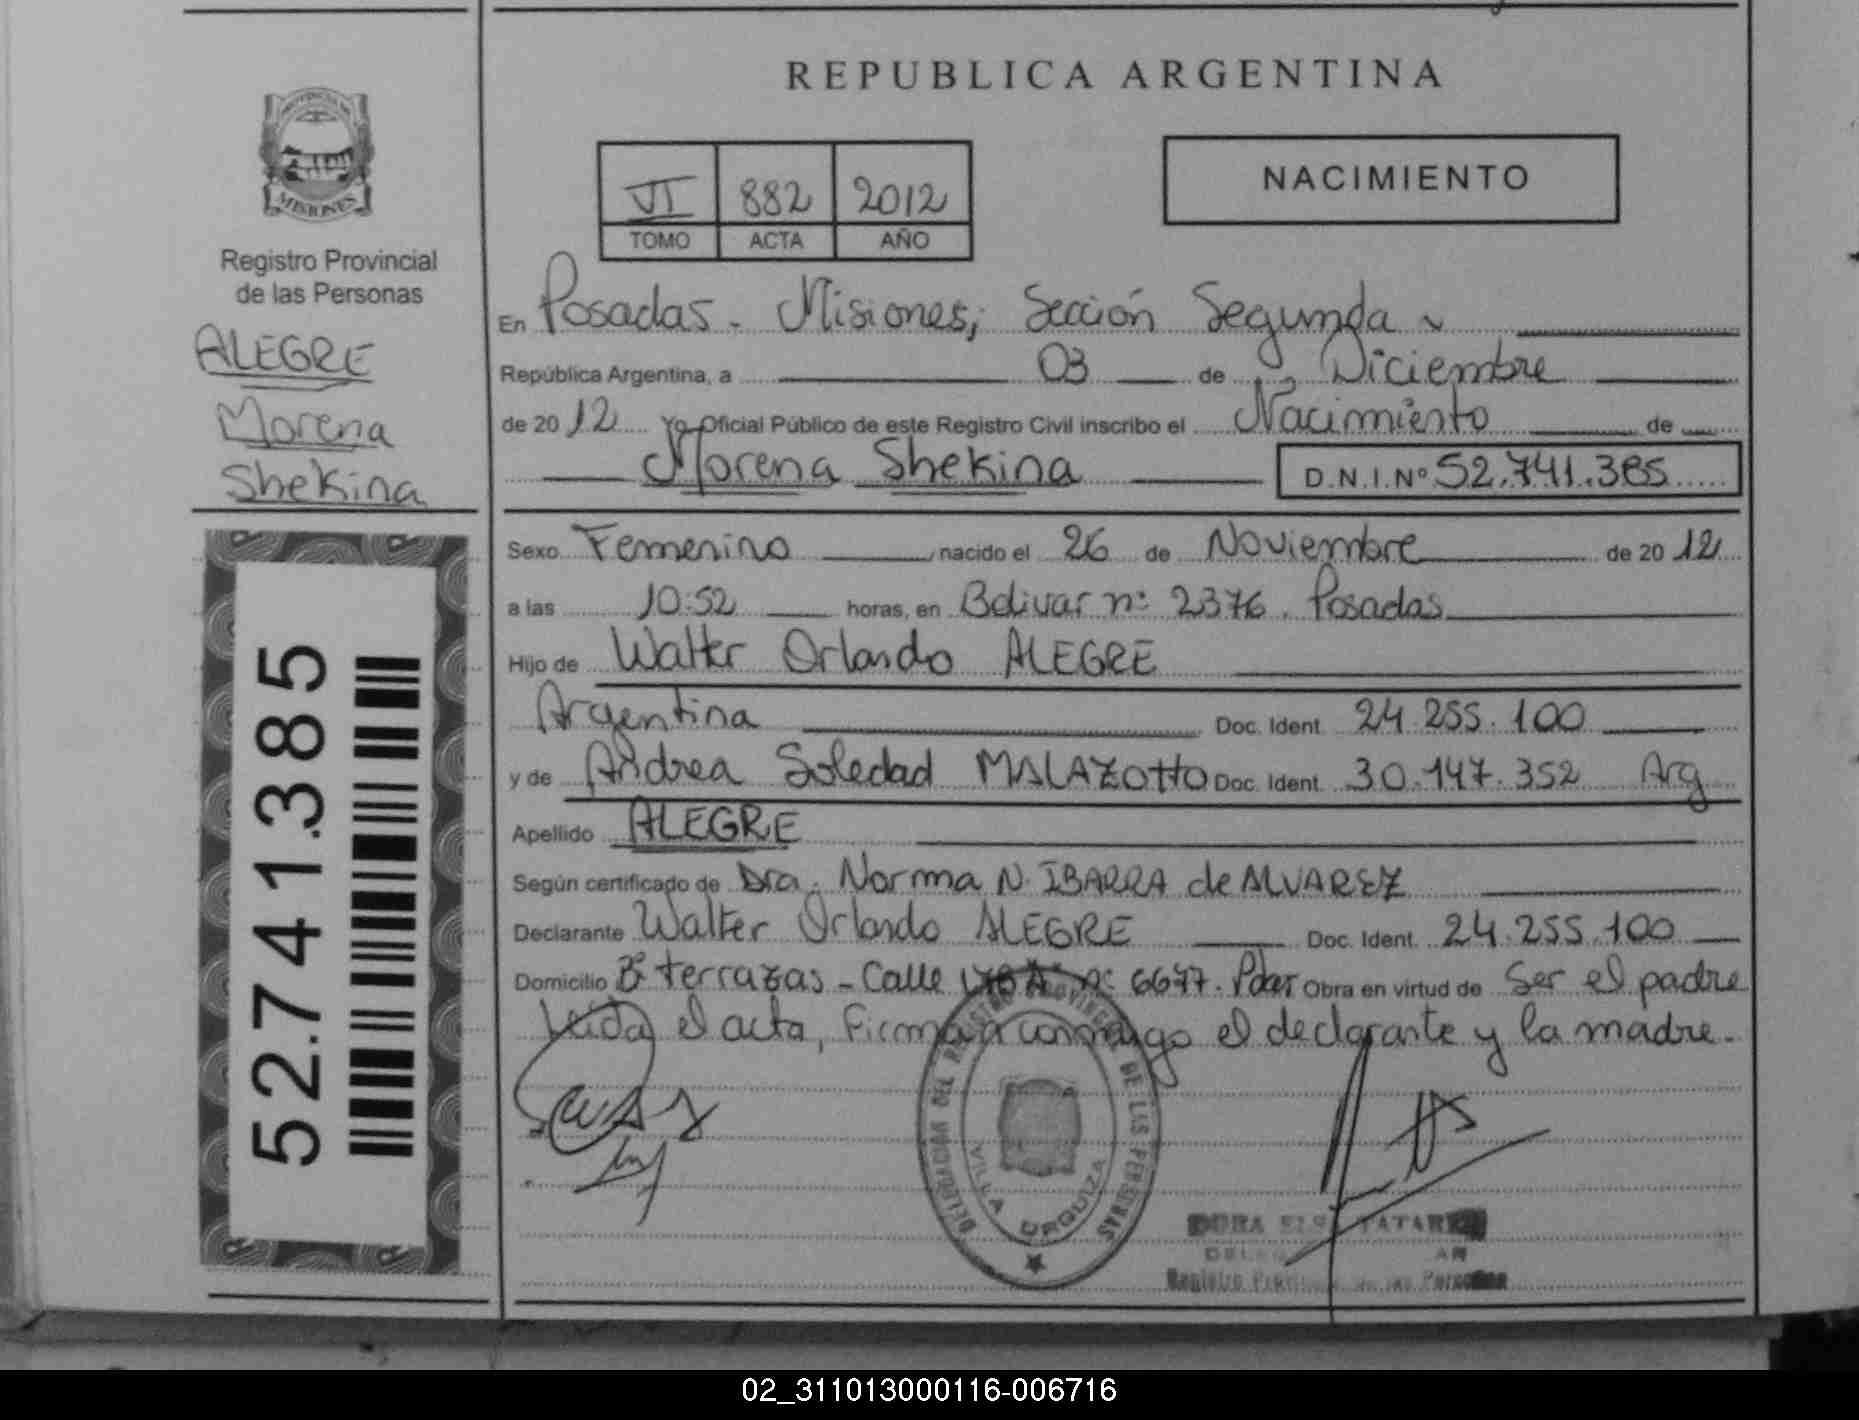 REPUBLICA ARGENTINA
PROVINCIA DE
MISIONES
Registro Provincial
de las Personas
ALEGRE
Morena
Shekina
52.741.385
VI 882 2012
TOMO ACTA AÑO
NACIMIENTO
En Posadas. Misiones; Sección Segunda
República Argentina, a 03 de Diciembre
de 2012 Yo Oficial Público de este Registro Civil inscribo el Nacimiento de
Morena Shekina D.N.I.Nº 52.741.385
Sexo Femenino nacido el 26 de Noviembre de 2012
a las 10:52 horas, en Bolivar nº 2376. Posadas
Hijo de Walter Orlando ALEGRE
Argentina Doc. Ident. 24.255.100
y de Andrea Soledad MALAZOTTO Doc. Ident. 30.147.352 Arg
Apellido ALEGRE
Según certificado de Dra. Norma N. IBARRA de ALVAREZ
Declarante Walter Orlando ALEGRE Doc. Ident. 24.255.100
Domicilio Bº terrazas - Calle nº 6677. Obra en virtud de Ser el padre
Leída el acta, Firman conmigo el declarante y la madre.
DELEGACION DEL REGISTRO PROVINCIAL DE LAS PERSONAS
VILLA URQUIZA
Registro de las Personas
02_311013000116-006716